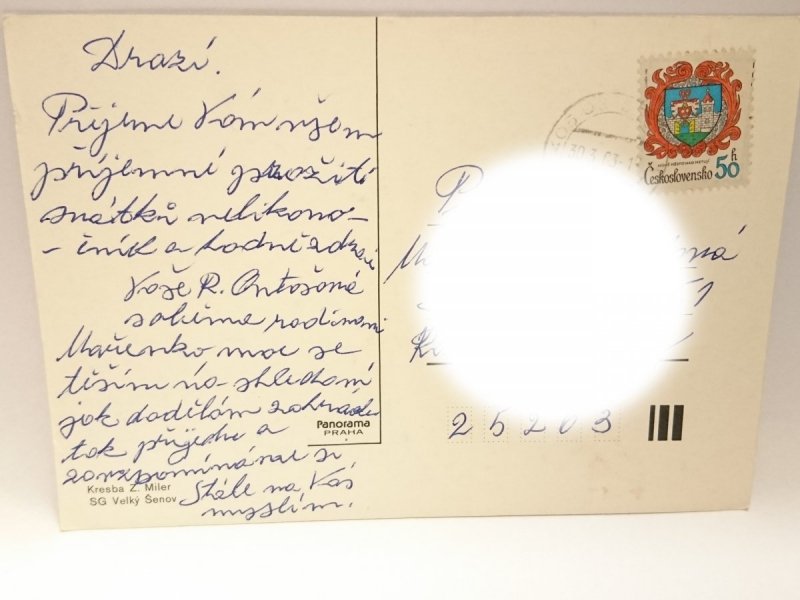 Drazí.
Přejeme Vám všem
příjemné prožití
svátků velikono-
- čních a hodně zdraví
Vaše R. Antošová
s oběma rodinami
Mařenko moc se
těším na shledaní
jak dodělám zahradu
tak přijedu a
zavzpomínáme si
Stále na Vás
myslím.
Kresba Z. Miler
SG Velký Šenov
Panorama
PRAHA
Československo 50 h
30.3.83-12
2 5 2 0 3